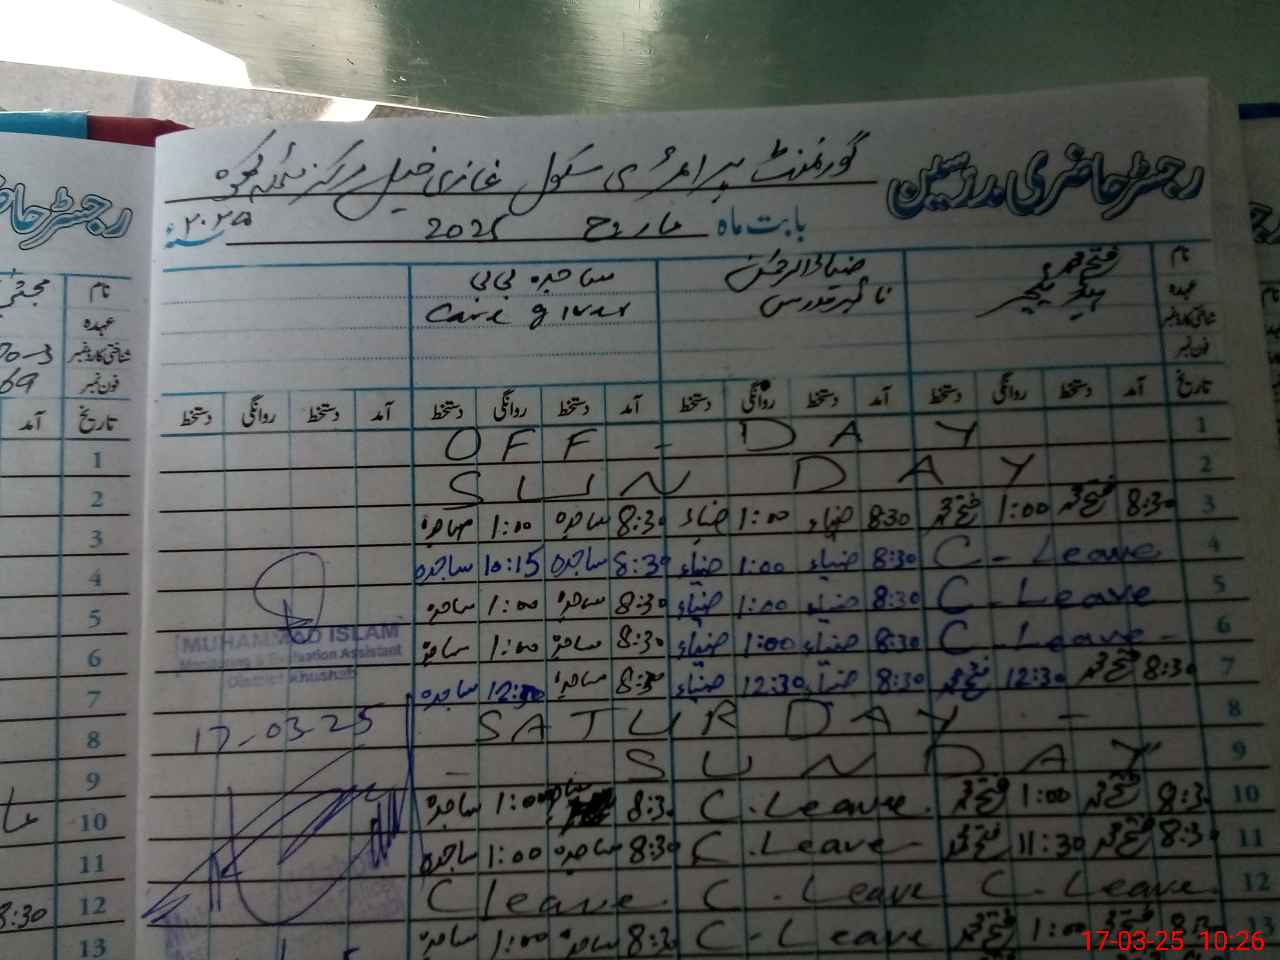 رجسٹر حاضری مدرسین
گورنمنٹ پرائمری سکول غازی خیل مرکز
بابت ماہ مارچ 2025 سنہ ۲۰۲۵
نام فتح محمد ضیاء الرحمٰن ساجدہ بی بی
عہدہ ہیڈ ٹیچر Care giver
شناختی کارڈ نمبر
فون نمبر
تاریخ آمد دستخط روانگی دستخط آمد دستخط روانگی دستخط آمد دستخط روانگی دستخط آمد دستخط روانگی دستخط
1 OFF - DAY
2 SUN DAY
3 8:30 فتح محمد 1:00 فتح محمد 830 ضیاء 1:00 ضیاء 8:30 ساجدہ 1:00 ساجدہ
4 C - Leave 8:30 ضیاء 1:00 ضیاء 8:30 ساجدہ 10:15 ساجدہ
5 C - Leave 8:30 ضیاء 1:00 ضیاء 8:30 ساجدہ 1:00 ساجدہ
6 C - Leave - 8:30 ضیاء 1:00 ضیاء 8:30 ساجدہ 1:00 ساجدہ
7 8:30 فتح محمد 12:30 فتح محمد 8:30 ضیاء 12:30 ضیاء 8:30 ساجدہ 12:30 ساجدہ
8 SATUR DAY -
9 - SUN DAY
10 8:30 فتح محمد 1:00 فتح محمد C. Leave. 8:30 1:00 ساجدہ
11 8:30 فتح محمد 11:30 فتح محمد C. Leave - 8:30 ساجدہ 1:00 ساجدہ
12 C - Leave. C. Leave C leave.
13 فتح محمد 1:00 فتح محمد C - Leave 8:30 ساجدہ 1:00 ساجدہ
MUHAMMAD ISLAM
Monitoring & Evaluation Assistant
District Khushab
17-03-25
رجسٹر
نام
عہدہ
شناختی کارڈ نمبر
فون نمبر 69
تاریخ آمد
1
2
3
4
5
6
7
8
9
10
11
12 8:30
13
17-03-25 10:26